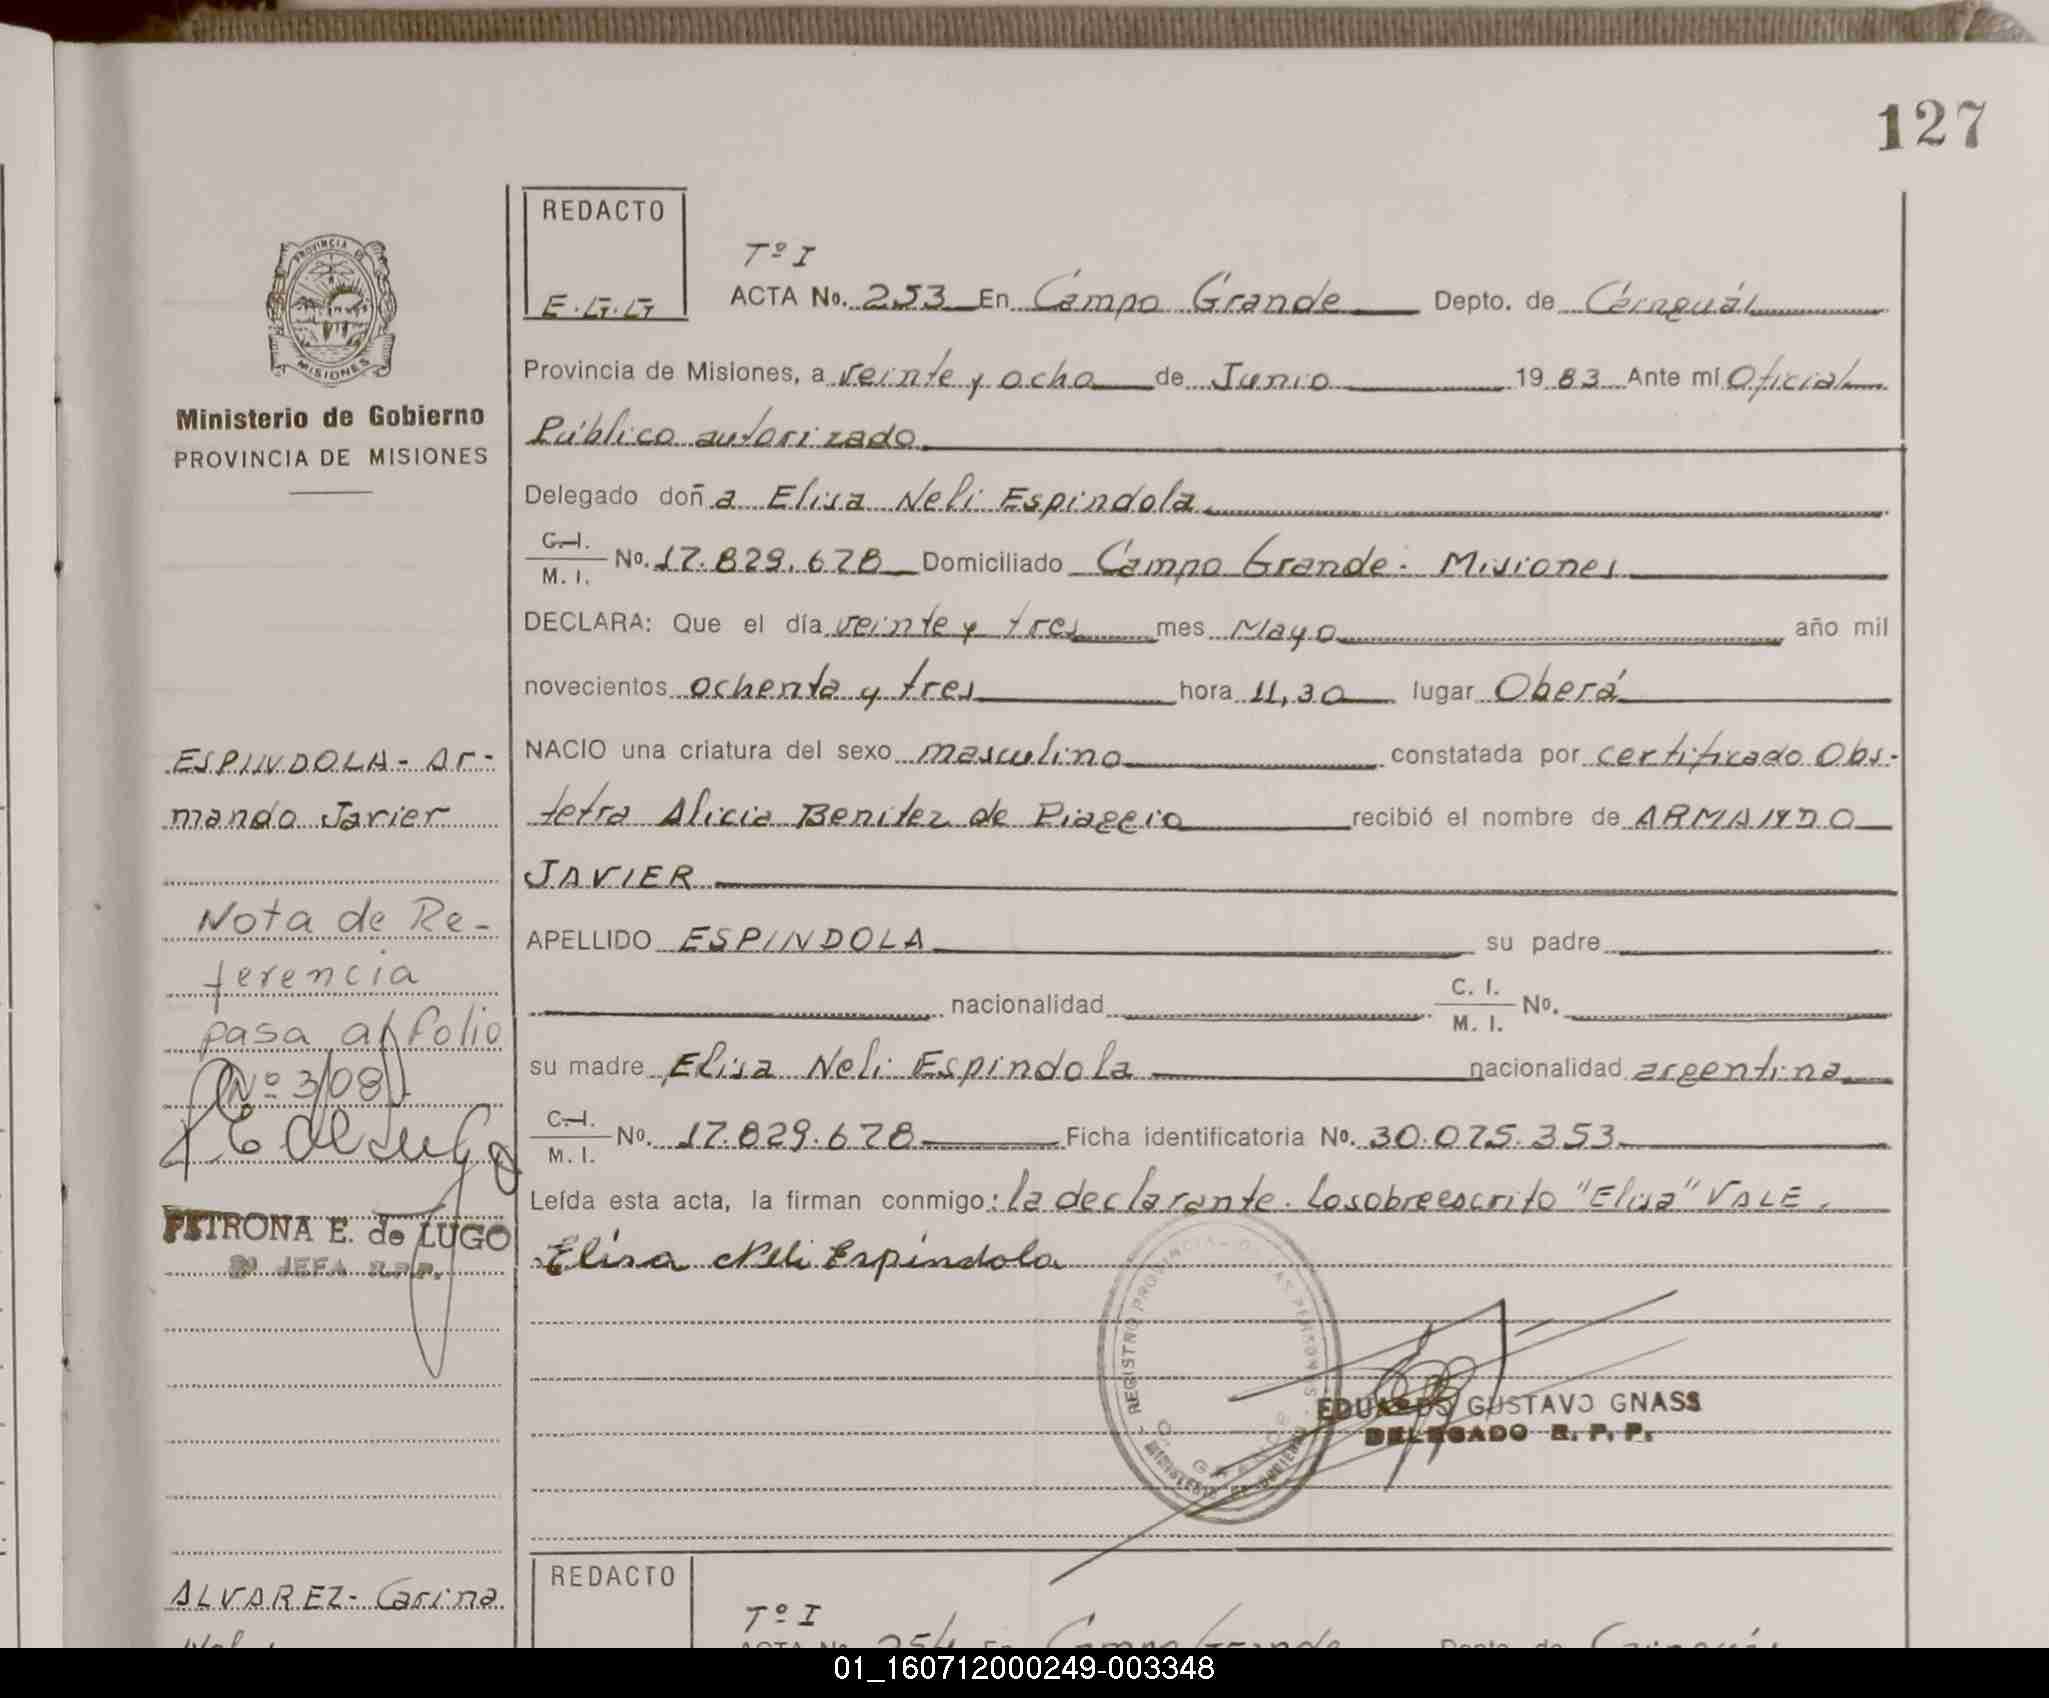 127
REDACTO
E.G.G
PROVINCIA DE
MISIONES
Ministerio de Gobierno
PROVINCIA DE MISIONES
Tº I
ACTA No. 253 En Campo Grande Depto. de Cainguás
Provincia de Misiones, a veinte y ocho de Junio 1983 Ante mí Oficial
Público autorizado
Delegado doña Elisa Neli Espindola
C.I. M. I. No. 17.829.678 Domiciliado Campo Grande - Misiones
DECLARA: Que el día veinte y tres mes Mayo año mil
novecientos ochenta y tres hora 11,30 lugar Oberá
NACIO una criatura del sexo masculino constatada por certificado Obs-
tetra Alicia Benitez de Piaggio recibió el nombre de ARMANDO
JAVIER
APELLIDO ESPINDOLA su padre
nacionalidad C. I. M. I. No.
su madre Elisa Neli Espindola nacionalidad argentina
C.I. M. I. No. 17.829.678 Ficha identificatoria No. 30.075.353
Leída esta acta, la firman conmigo: la declarante. Lo sobreescrito "Elisa" VALE.
Elisa Neli Espindola
REGISTRO PROVINCIAL DE LAS PERSONAS
C. GRANDE
MINISTERIO DE GOBIERNO
EDUARDO GUSTAVO GNASS
DELEGADO R. P. P.
ESPINDOLA - Ar-
mando Javier
Nota de Re-
ferencia
pasa al folio
Nº 308
E de Lugo
PETRONA E. de LUGO
2º JEFA R.P.P.
REDACTO
ALVAREZ - Carina
Tº I
ACTA No. 254 En Campo Grande Depto. de Cainguás
01_160712000249-003348